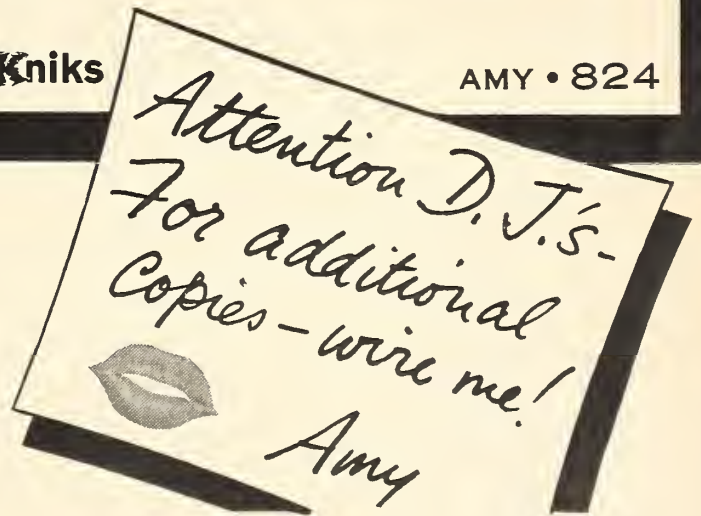 Kniks
AMY • 824
Attention D. J.'s-
For additional
Copies - wire me!
Amy